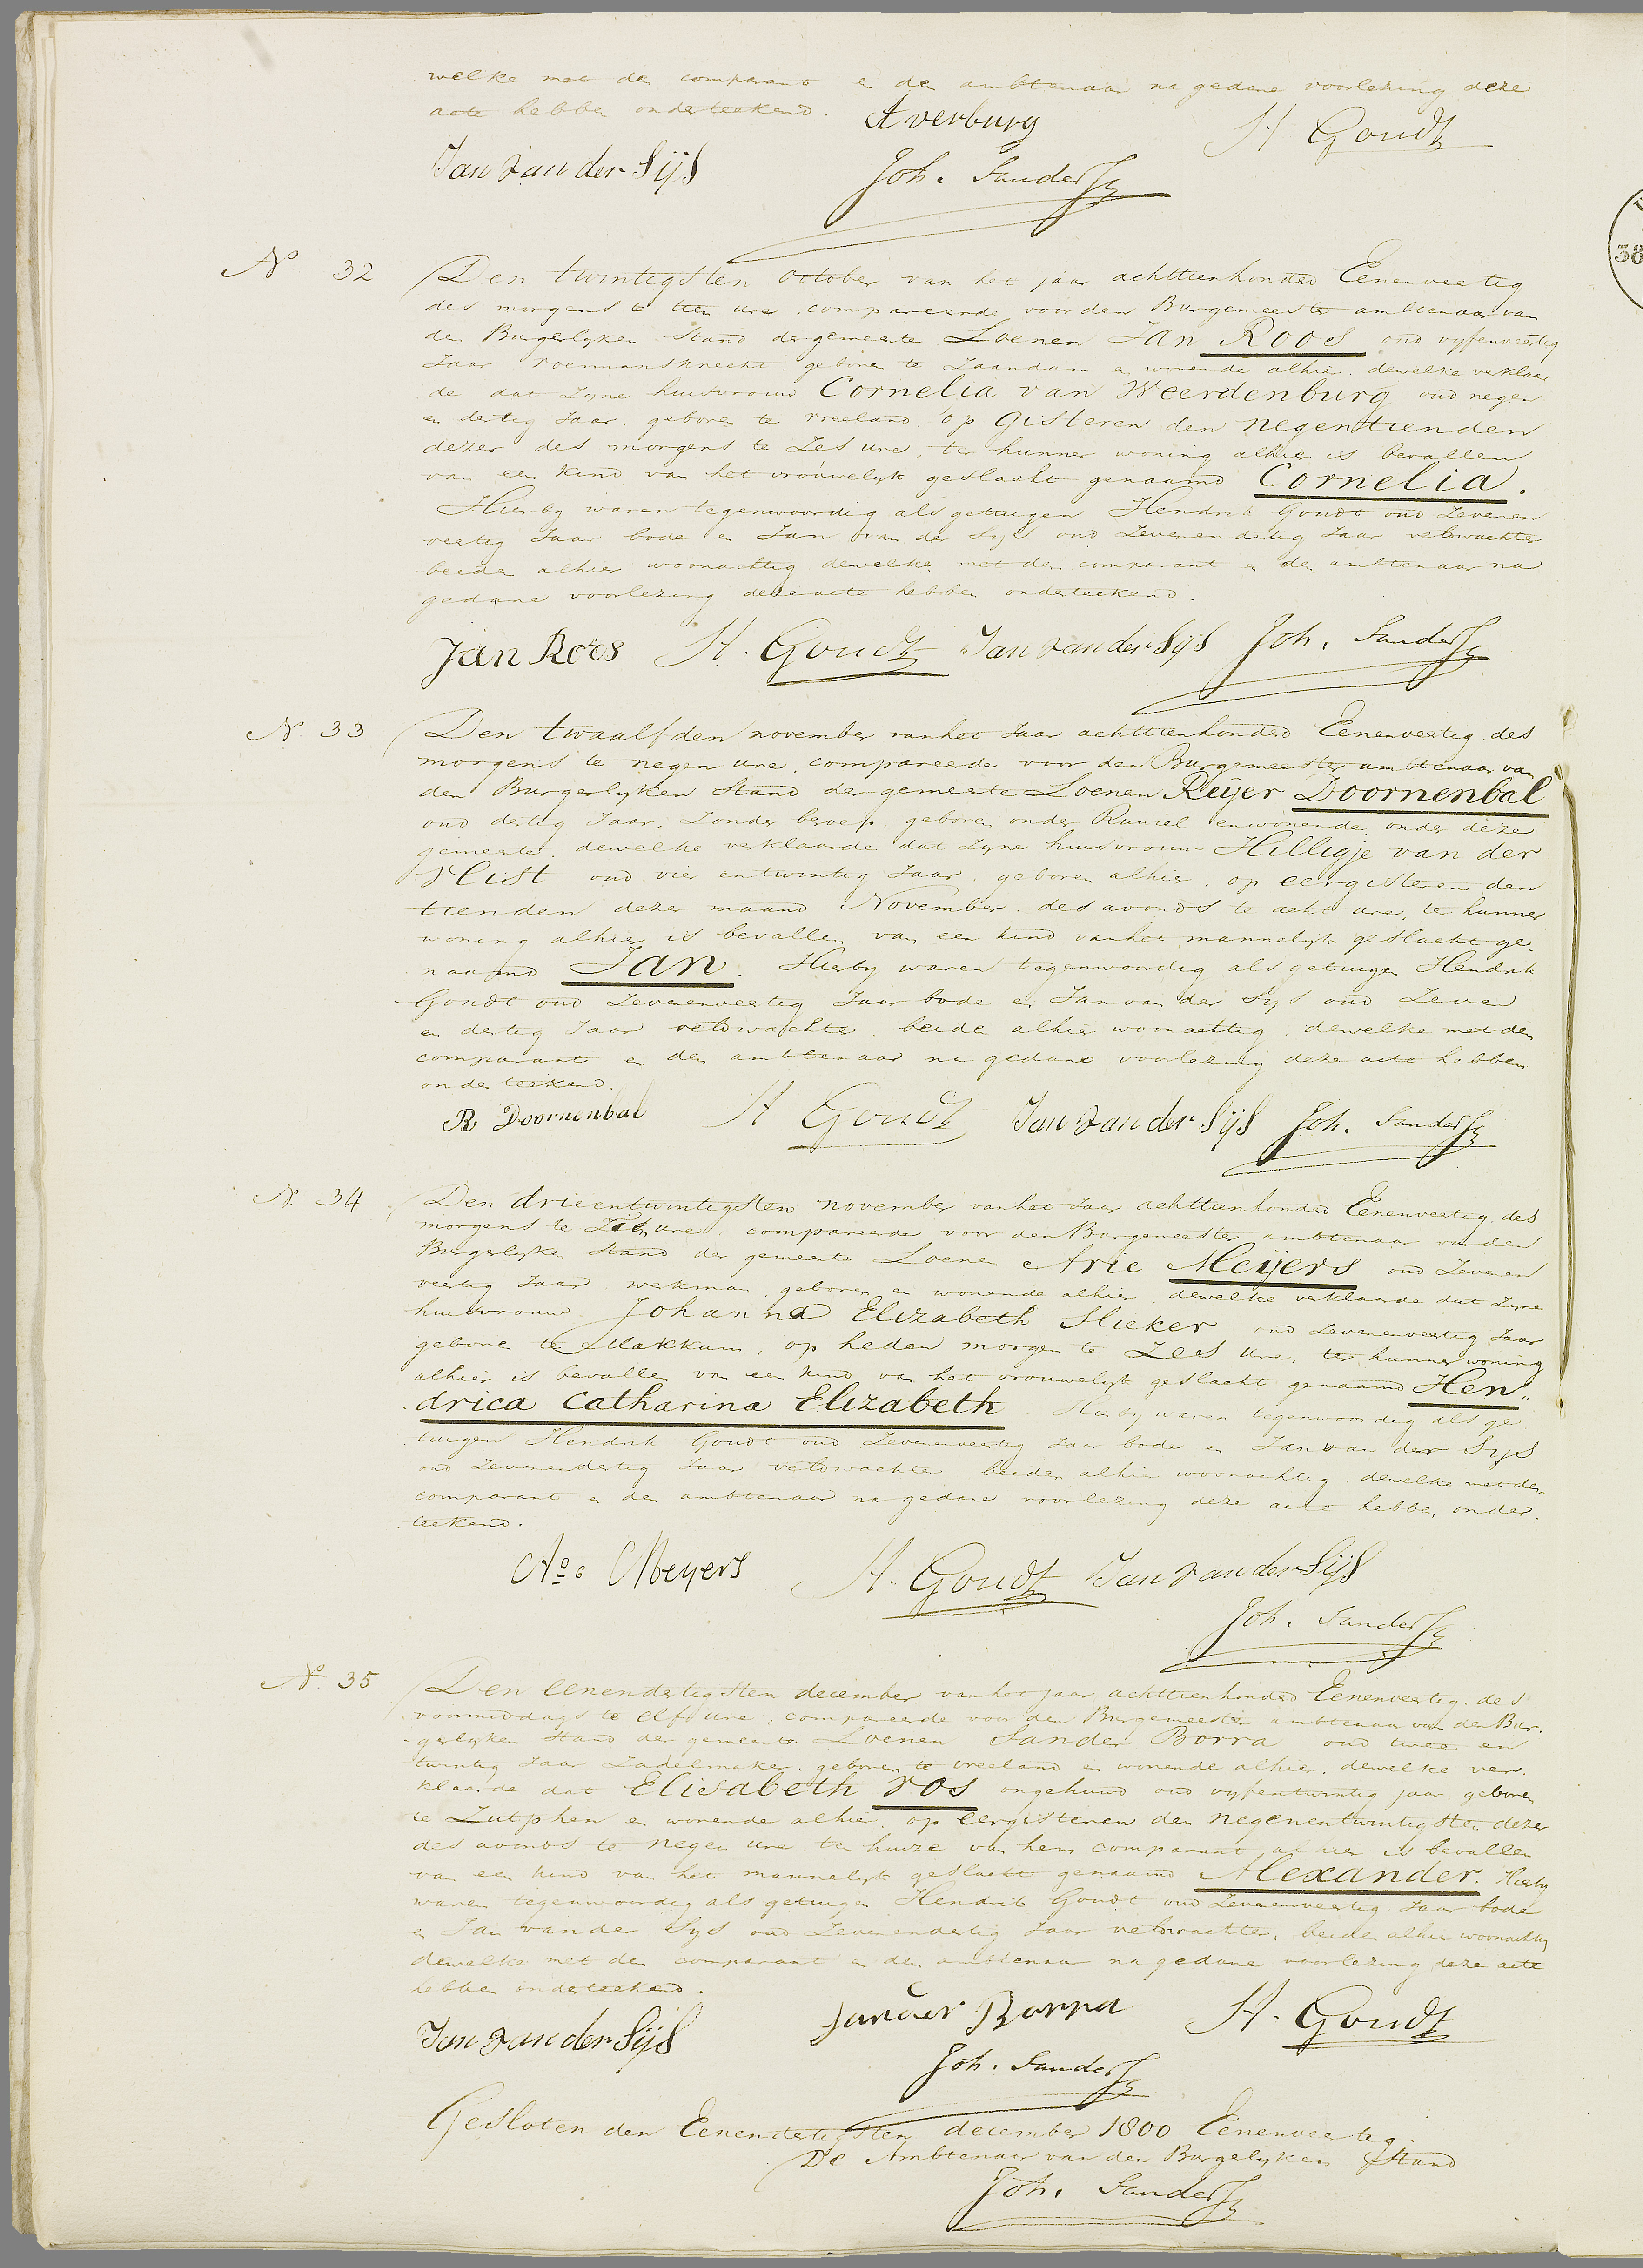 welke met den comparant en den ambtenaar na gedane voorlezing deze
acte hebben onderteekend. A verburg H Goudt
Jan van der Sijs Joh. Sanders
No 32 Den twintigsten october van het jaar achttienhonderd Eenenveertig
des morgens te tien ure, compareerde voor den Burgemeester ambtenaar van
den Burgerlyken Stand der gemeente Loenen Jan Roos oud vyfenveertig
Jaar roermansknecht, geboren te Zaandam en wonende alhier, dewelke verklaar
de dat Zyne huisvrouw Cornelia van Weerdenburg oud negen
en dertig Jaar, geboren te vreeland, op gisteren den negentienden
dezer des morgens te Zes ure, ter hunner woning alhier is bevallen
van een kind van het vrouwelyk geslacht genaamd Cornelia.
Hierby waren tegenwoordig als getuigen Hendrik Goudt oud Zevenen
veertig Jaar bode en Jan van der Sijs oud Zevenendertig Jaar veldwachter
beiden alhier woonachtig dewelke met den comparant en den ambtenaar na
gedane voorlezing deze acte hebben onderteekend.
Jan Roos H. Goudt Jan van der Sijs Joh. Sanders
N. 33 Den twaalfden november van het Jaar achttienhonderd Eenenveertig des
morgens te negen ure, compareerde voor den Burgemeester ambtenaar van
den Burgerlyken Stand der gemeente Loenen Reijer Doornenbal
oud dertig Jaar, Zonder beroep, geboren onder Ruwiel en wonende onder deze
gemeente, dewelke verklaarde dat Zyne huisvrouw Hilligje van der
Vlist oud vier en twintig Jaar, geboren alhier, op eergisteren den
tienden dezer maand November des avonds te acht ure, ter hunner
woning alhier is bevallen van een kind van het mannelyk geslacht ge
naamd Jan. Hierby waren tegenwoordig als getuigen Hendrik
Goudt oud Zevenenveertig Jaar bode en Jan van der Sijs oud Zeven
en dertig Jaar veldwachter, beiden alhier woonachtig, dewelke met den
comparant en den ambtenaar na gedane voorlezing deze acte hebben
onderteekend.
R Doornenbal H Goudt Jan van der Sijs Joh. Sanders
N. 34 Den drieentwintigsten november van het Jaar achttienhonderd Eenenveertig des
morgens te ure, compareerde voor den Burgemeester ambtenaar van den
Burgerlyken Stand der gemeente Loenen Arie Meijers oud Zevenen
veertig Jaar, werkman, geboren en wonende alhier, dewelke verklaarde dat Zyne
huisvrouw Johanna Elizabeth Slieker oud Zevenenveertig Jaar
geboren te Makkum, op heden morgen te Zes ure, ter hunner woning
alhier is bevallen van een kind van het vrouwelyk geslacht genaamd Hen„
drica Catharina Elizabeth Hierby waren tegenwoordig als ge
tuigen Hendrik Goudt oud Zevenenveertig Jaar bode en Jan van der Sijs
oud Zevenendertig Jaar veldwachter beiden alhier woonachtig, dewelke met den
comparant en den ambtenaar na gedane voorlezing deze acte hebben onder
teekend.
Ao. Meyers H. Goudt Jan van der Sijs
Joh. Sanders
No. 35 Den eenendertigsten december van het jaar achttienhonderd Eenenveertig, des
voormiddags te elf ure, compareerde voor den Burgemeester ambtenaar van den Bur
gerlyken Stand der gemeente Loenen Sander Borra oud twee en
twintig Jaar Zadelmaker, geboren te vreeland en wonende alhier, dewelke ver
klaarde dat Elisabeth Vos ongehuwd oud vyfentwintig jaar, geboren
te Zutphen en wonende alhier, op eergisteren den negenentwintigsten dezer
des avonds te negen ure ten huize van hem comparant alhier is bevallen
van een kind van het mannelyk geslacht genaamd Alexander. Hierby
waren tegenwoordig als getuigen Hendrik Goudt oud Zevenenveertig Jaar bode
en Jan van der Sijs oud Zevenendertig Jaar veldwachter, beiden alhier woonachtig
dewelke met den comparant en den ambtenaar na gedane voorlezing deze acte
hebben onderteekend.
Jan van der Sijs Sander Borra H. Goudt
Joh. Sanders
Gesloten den Eenendertigsten december 1800 Eenenveertig
De Ambtenaar van den Burgelyken Stand
Joh. Sanders
38